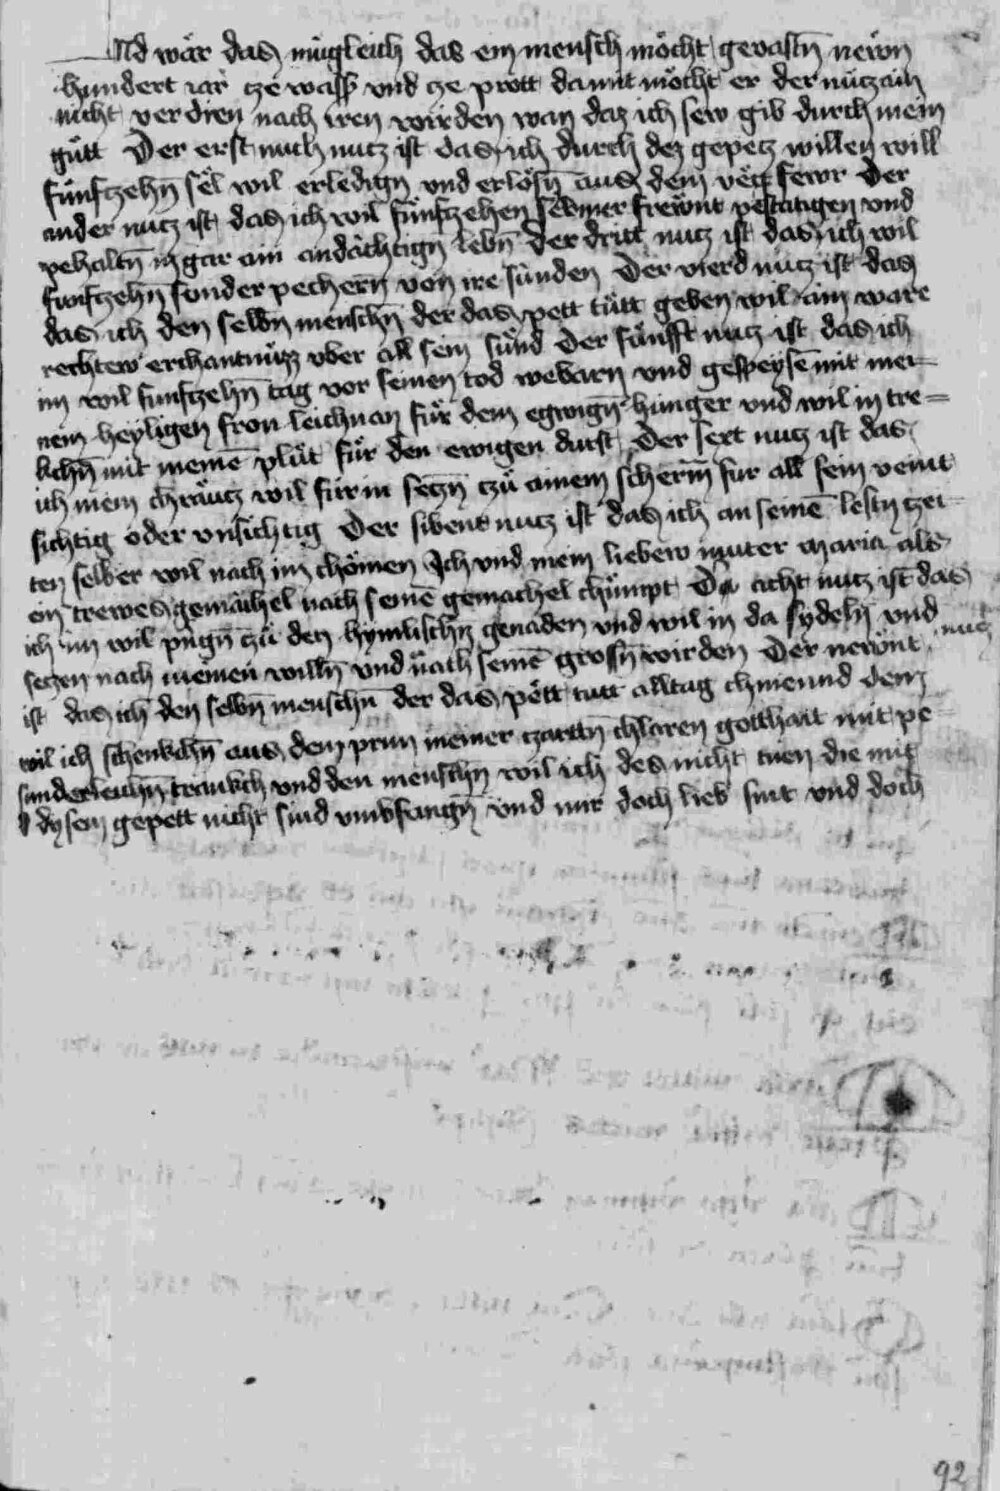 Ud wär das mügleich das ein mensch möcht gevastn̄ newn
hundert iar cze wasser vnd cze prott damit möcht er der nucz ain
nicht verdien nach iren wirden wan daz ich sew gib durch mein
gütt Der erst nucz ist das ich durch dez gepetz willen will
fünfczehn̄ sel wil erledign̄ vnd erlösn̄ aus dem vegfewr Der
ander nucz ist das ich wil fünfczehen seiner frewnt pestatigen vnd
pehaltn̄ in gar ain andächtign̄ lebn̄ Der dritt nucz ist das ich wil
funfczehn̄ sonder pechern̄ von ire sünden Der vierd nucz ist das
das ich den selbn̄ menschn̄ der das pett tütt geben wil ain ware
rechtew erchantnüzz vber all sein sünd Der fünfft nucz ist das ich
im wil funfczehn̄ tag vor seinen tod webarn vnd gespeysē mit mei
nem heyligen fron leichnan für dem egwign̄ hunger vnd wil in tre=
kchn̄ mit meinē plüt für den ewigen durst Der sext nucz ist das
ich mein chräucz wil für in seczn̄ czü ainem scherm̄ fur all sein veint
sichtig oder vnsichtig Der sibent nucz ist das ich an seinē lestn̄ czei
ten selber wil nach im chömen Ich vnd mein liebew muter maria als
ein trewes gemächel nach seinē gemachel chümpt Da acht nucz ist das
ich im wil pringn̄ czü den hymlischn̄ genaden vnd wil in da sydeln̄ vnd
seczen nach meinen willn̄ vnd nach seinē grossn̄ wirden Der newnt nucz
ist das ich den selbn̄ menschn̄ der das pett tutt alltag chnieund dem
wil ich schenkchn̄ aus dem prun meiner czarttn̄ chlaren gotthait mit pe
sunderleichn̄ trankch vnd den menschn̄ wil ich des nicht tuen die mit
dysem gepett nicht sind vmbfangn̄ vnd mir doch lieb sint vnd doch
92